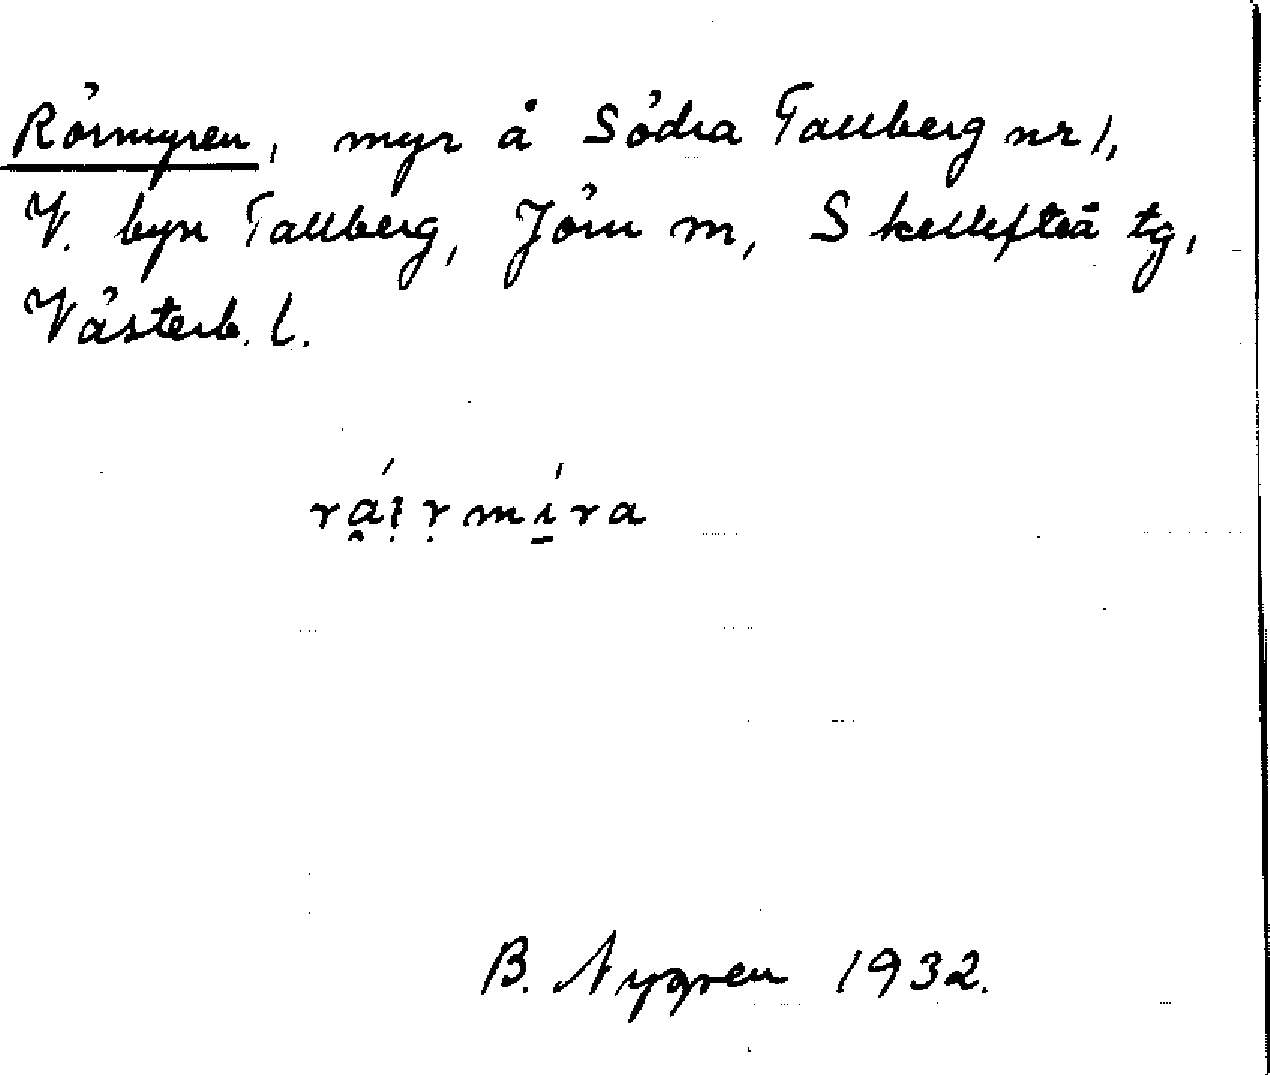 Rörmyren, myr å Södra Tallberg nr 1,
V. byn Tallberg, Jörn m, Skellefteå tg,
Västerb. l.
B. Nygren 1932.